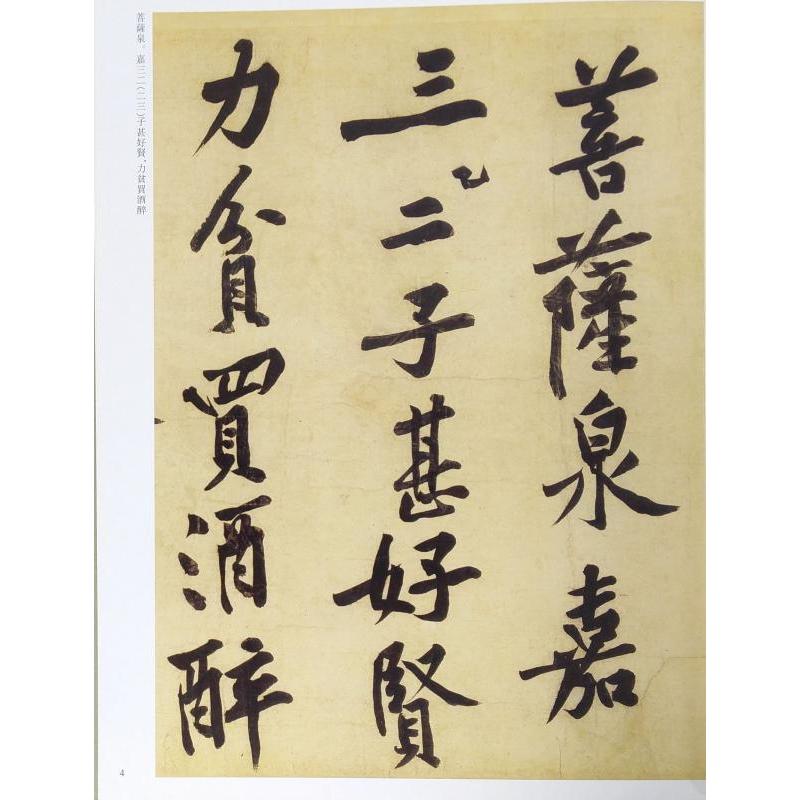 菩薩泉嘉
三二子甚好賢
力貧買酒醉
菩薩泉。嘉三二(二三)子甚好賢,力貧買酒醉
4